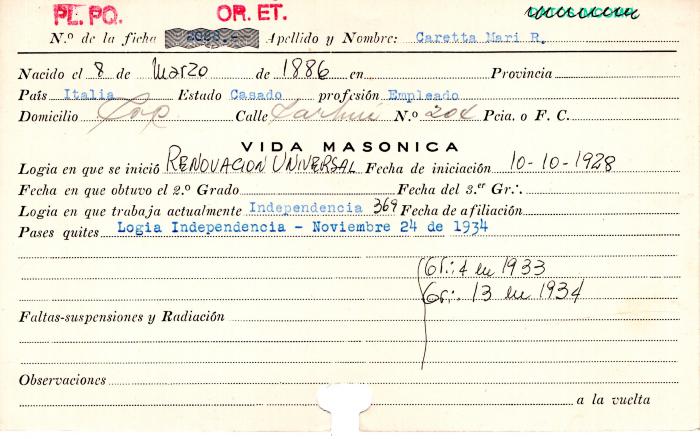 PL. PQ. OR. ET.
N.º de la ficha Apellido y Nombre: Caretta Mari R.
Nacido el 8 de Marzo de 1886 en Provincia
País Italia Estado Casado profesión Empleado
Domicilio Cap Calle N.º 204 Pcia. o F. C.
VIDA MASONICA
Logia en que se inició RENOVACION UNIVERSAL Fecha de iniciación 10-10-1928
Fecha en que obtuvo el 2.º Grado Fecha del 3.er Gr∴
Logia en que trabaja actualmente Independencia 369 Fecha de afiliación
Pases quites Logia Independencia - Noviembre 24 de 1934
Gr∴ 4 en 1933
Gr∴ 13 en 1934
Faltas-suspensiones y Radiación
Observaciones
a la vuelta